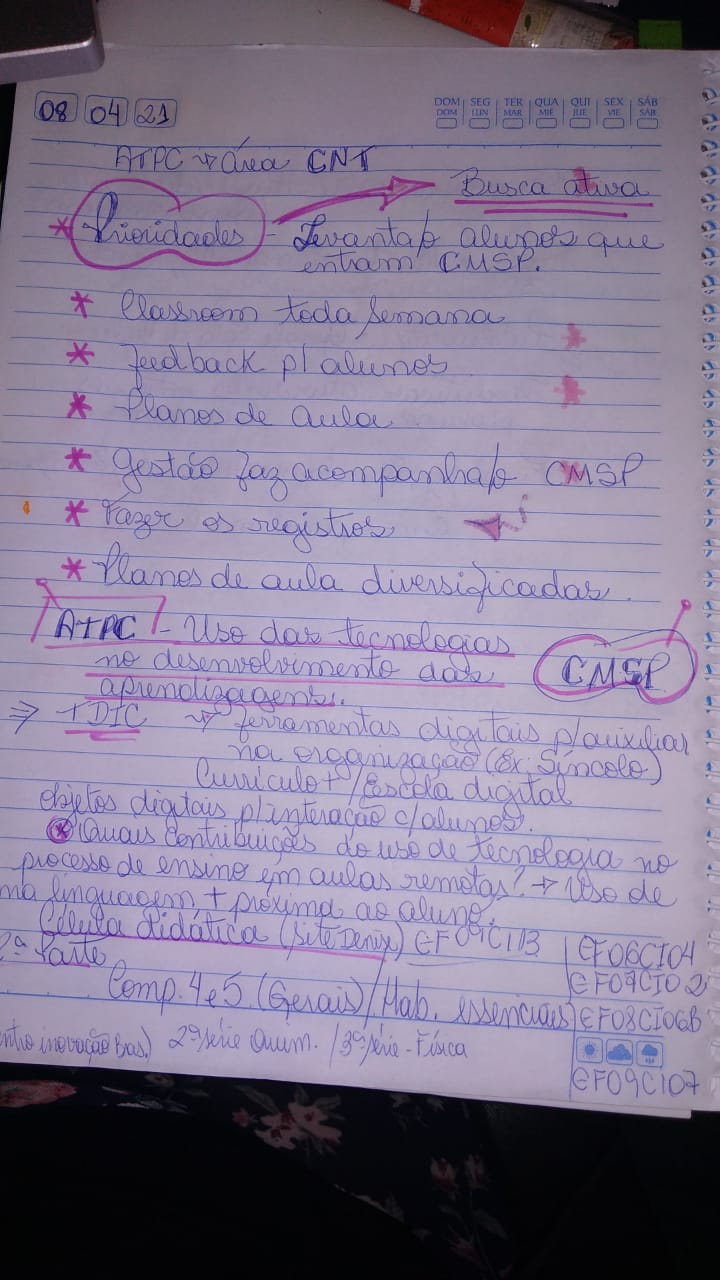 08 04 21
DOM SEG TER QUA QUI SEX SÁB
DOM LUN MAR MIÉ JUE VIE SÁB
ATPC → área CNT
Busca ativa
* Prioridades - Levanta/o alunos que
entram CMSP.
* Classroom toda semana
* Feedback p/ alunos
* Planos de aula
* Gestão faz acompanha/o CMSP
* Fazer os registros
* Planos de aula diversificadas.
ATPC - Uso das tecnologias
no desenvolvimento das
aprendizagens.
CMSP
⇒ TDIC → ferramentas digitais p/ auxiliar
na organização (Ex: Síncolo)
Currículo + / Escola digital
objetos digitais p/ interação c/ alunos.
* Quais contribuições do uso de tecnologia no
processo de ensino em aulas remotas? → Uso de
ma linguagem + próxima ao aluno.
Célula didática (site Denise) EF09CI13
EF06CI04
2ª Parte
EF07CI02
Comp. 4 e 5 (Gerais) / Hab. essenciais
EF08CI06B
entro inovação Bas.) 2ª série Quím. / 3ª série - Física
EF09CI07